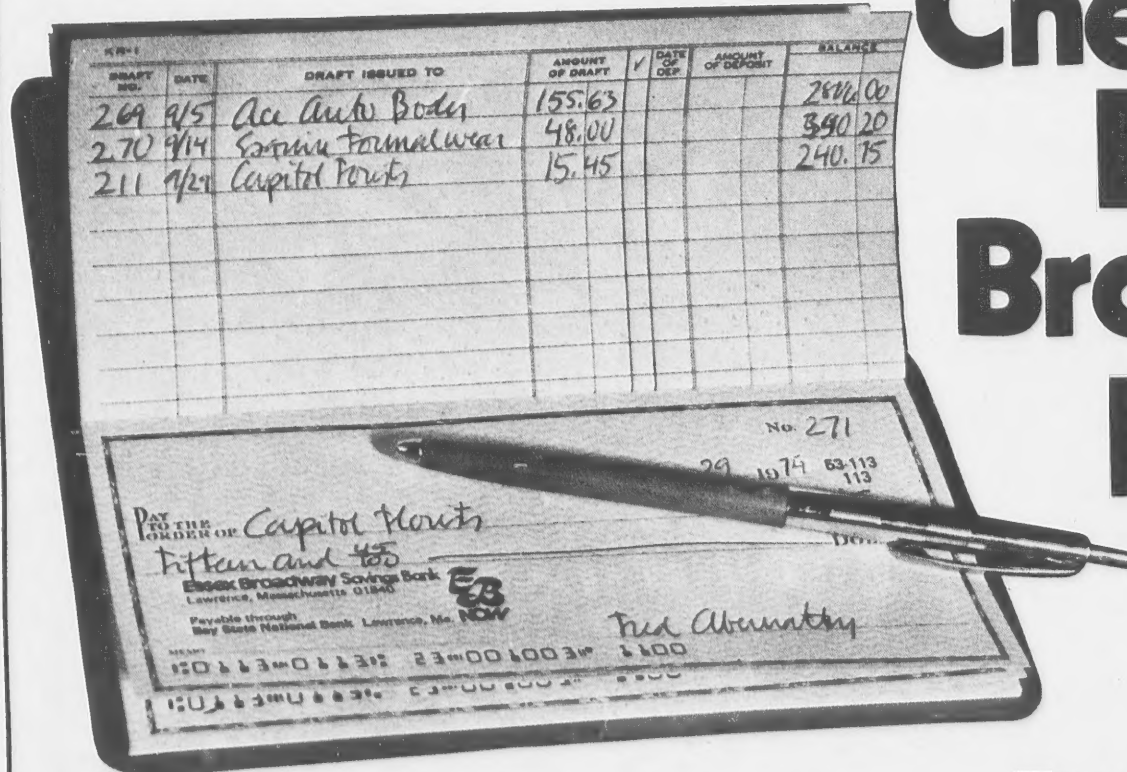 Che
Bro
KR-1
DRAFT NO. DATE DRAFT ISSUED TO AMOUNT OF DRAFT ✓ DATE OF DEP. AMOUNT OF DEPOSIT BALANCE
269 9/5 Ace Auto Body 155.63 00
270 9/14 Formalwear 48.00 20
211 9/29 Capitol Florists 15.45 240.75
No. 271
29 1974 53-113
113
PAY TO THE ORDER OF Capitol Florists
Fifteen and 45/100
Essex Broadway Savings Bank
Lawrence, Massachusetts 01840
EB NOW
Payable through
Bay State National Bank Lawrence, Ma.
Fred Abernathy
MEMO